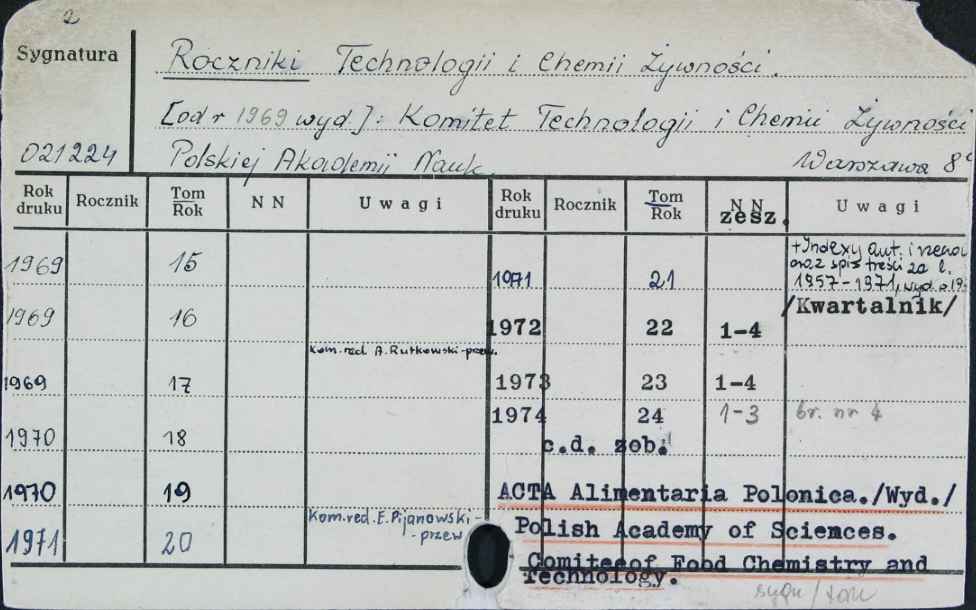 2
Sygnatura
Roczniki Technologii i Chemii Żywności.
[od r 1969 wyd.]: Komitet Technologii i Chemii Żywności
021224 Polskiej Akademii Nauk. Warszawa 8°
Rok druku Rocznik Tom Rok N N Uwagi Rok druku Rocznik Tom Rok N N zesz. Uwagi
1969 15
1971 21 +Indexy aut. i
oraz spis treści za l.
1957-1971, wyd.
1969 16
/Kwartalnik/
1972 22 1-4
kom. red. A. Rutkowski-przew.
1969 17
1973 23 1-4
1974 24 1-3 br. nr 4
1970 18
c.d. zob.
1970 19
ACTA Alimentaria Polonica./Wyd./
kom. red. E. Pijanowski-
-przew
1971 20
Polish Academy of Sciences.
Comiteeof Food Chemistry and
Technology.
sygn/